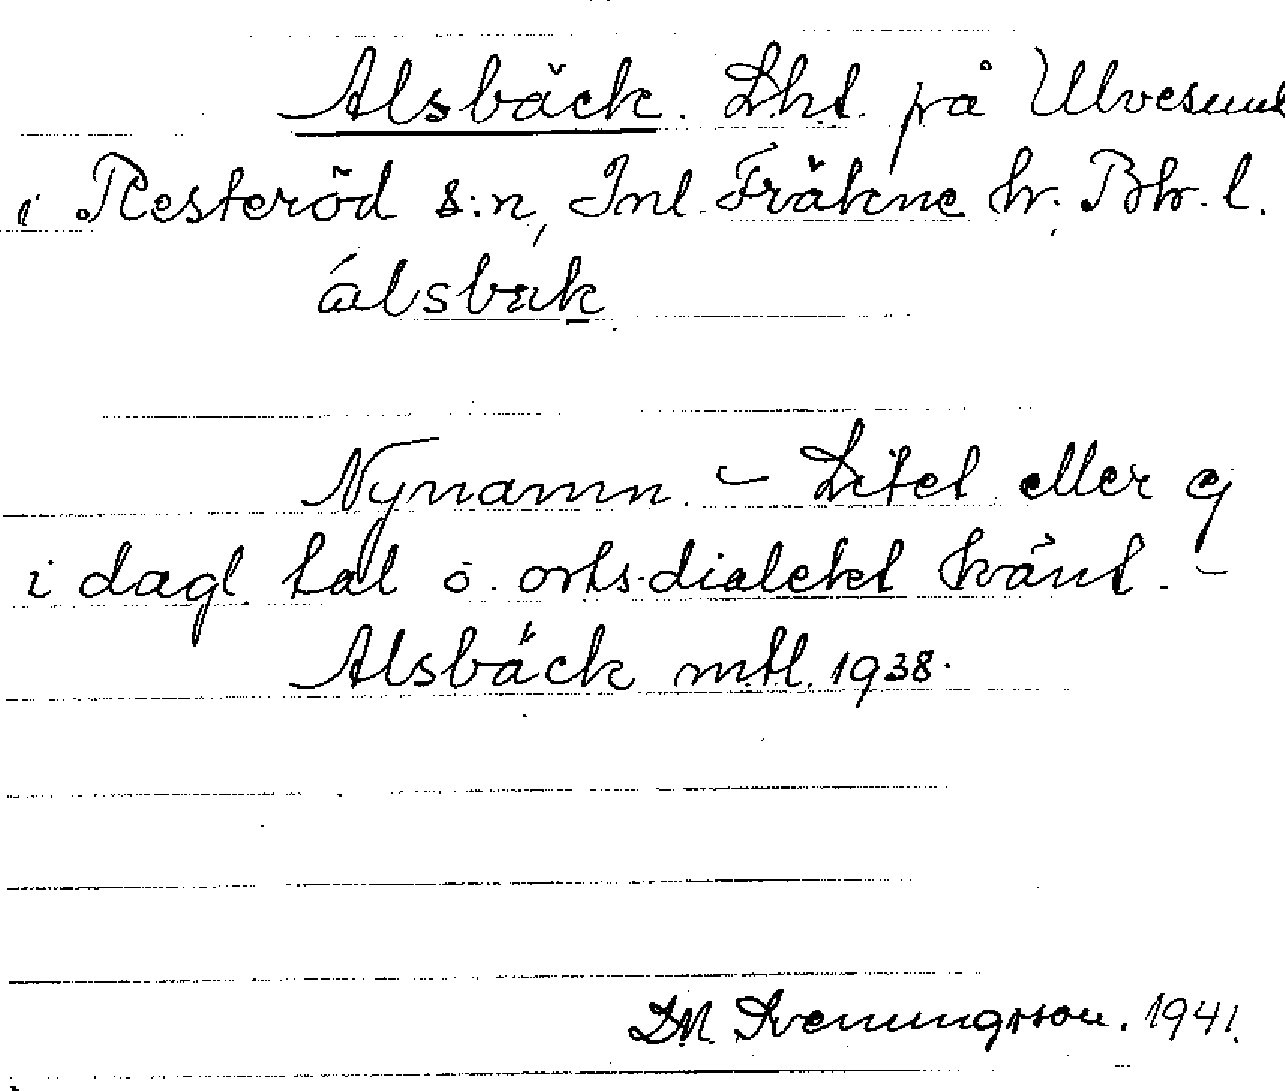 Alsbäck. Lht. på Ulvesund
i Resteröd s:n, Inl. Fräkne hr. Bhr. l.
álsbæk
Nynamn. – Litet eller ej
i dagl. tal o. ortsdialekt känt. –
Alsbäck mtl. 1938.
Sveningsson. 1941.